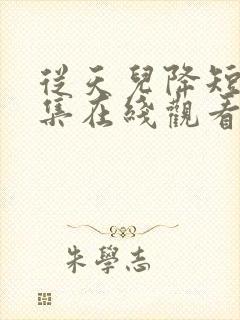 從天兒降短
集在綫觀看
朱學志